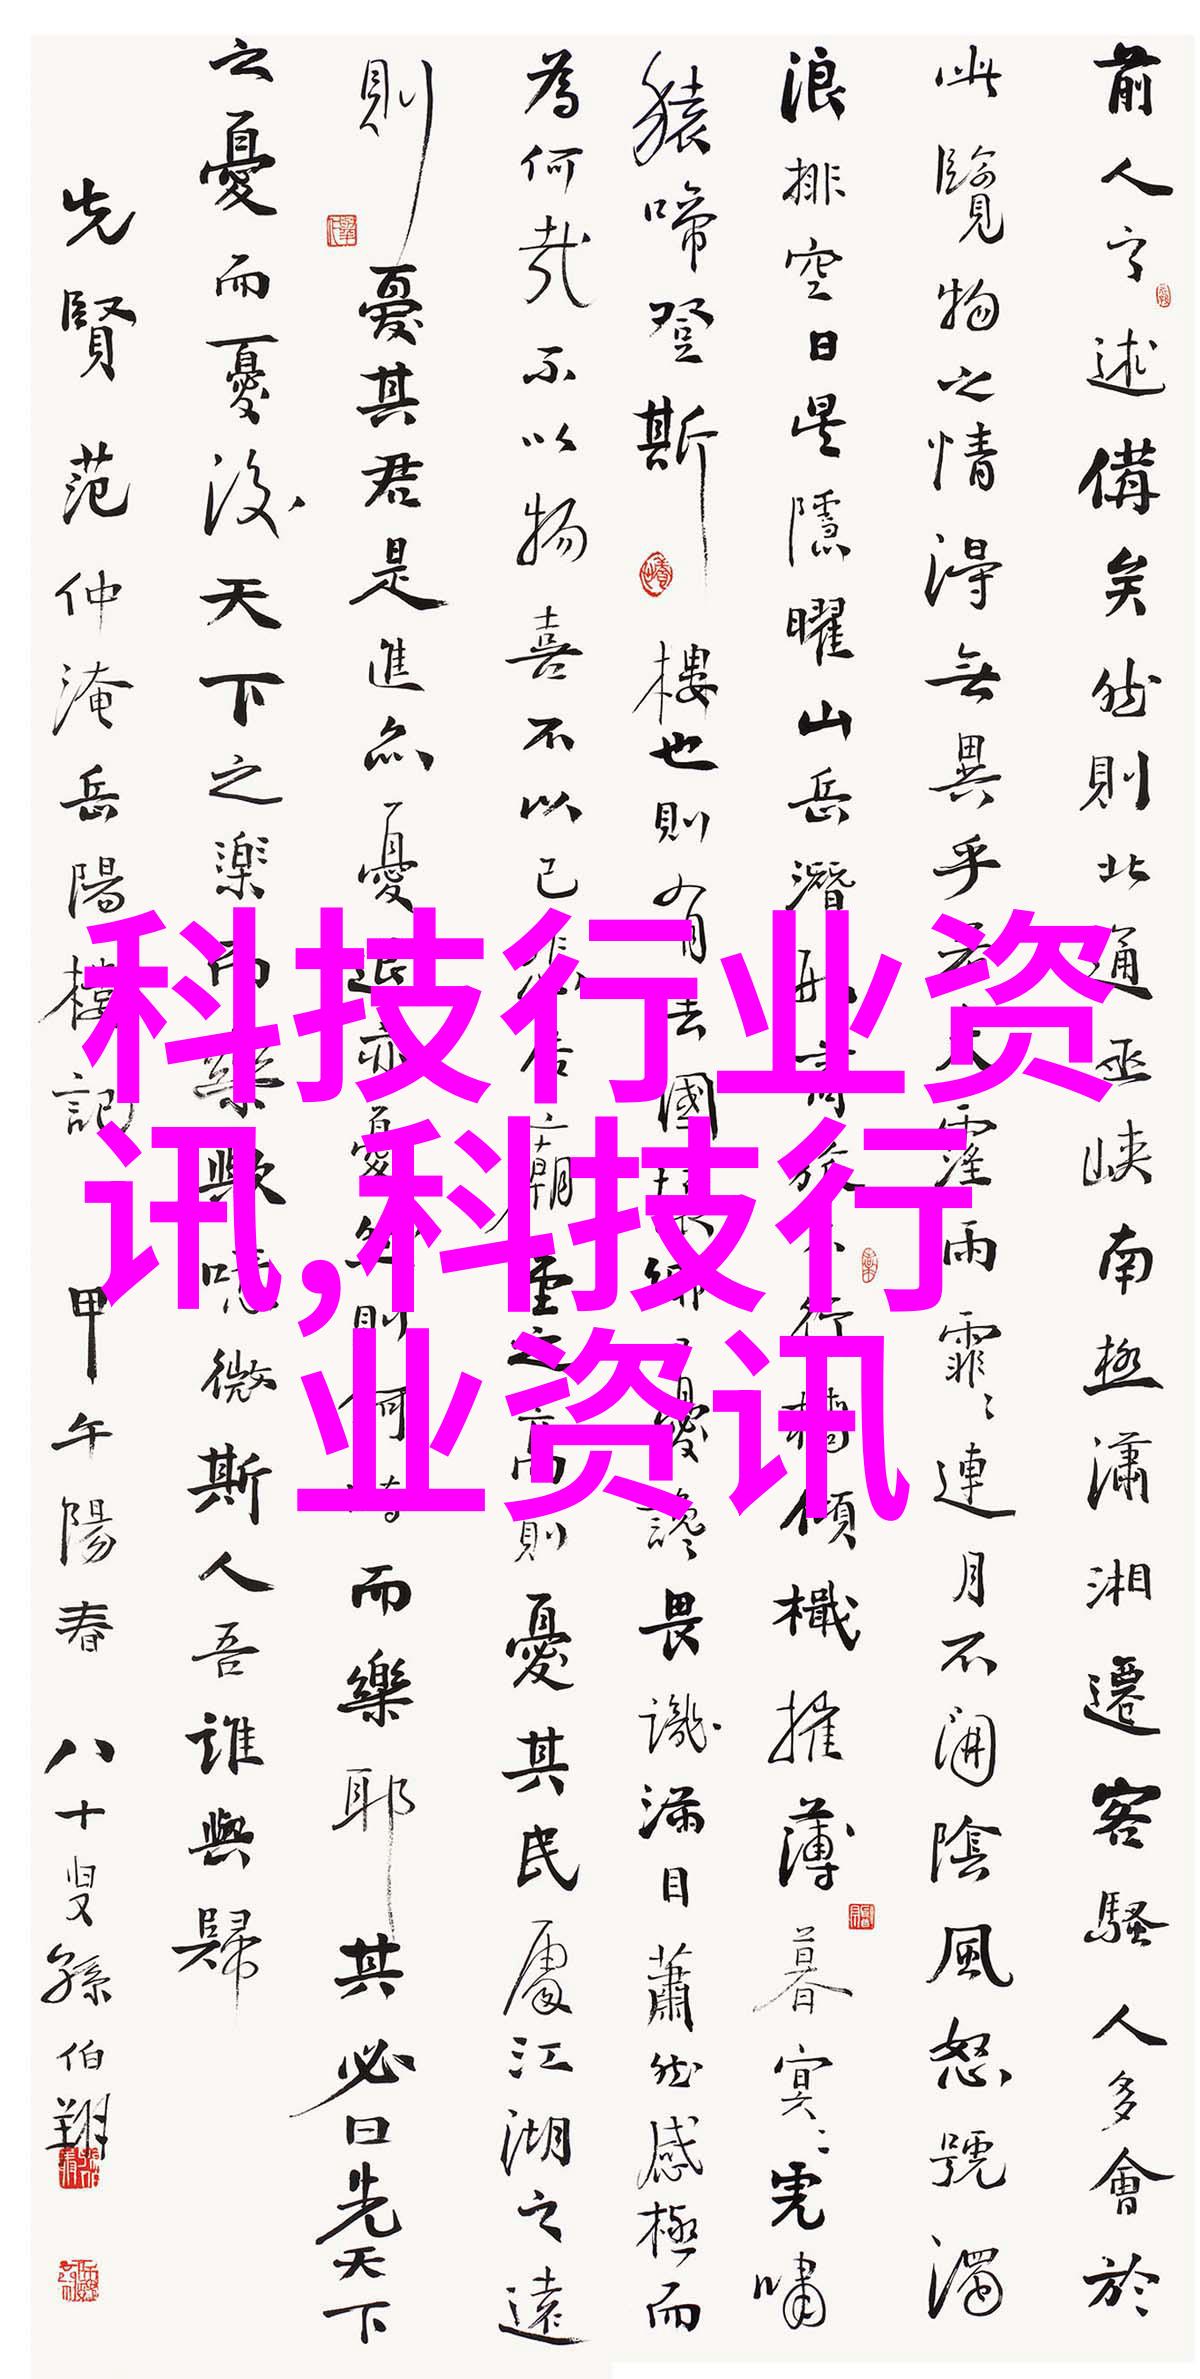 科技行业资
讯,科技行
业资讯
前人之述備矣然則北通巫峡南極瀟湘遷客騷人多會於
此覽物之情得無異乎若夫霪雨霏〻連月不開陰風怒號濁
浪排空日星隱曜山岳潛形商旅不行檣傾檝摧薄暮冥〻虎嘯
猿啼登斯樓也則有去國懷鄉憂讒畏譏滿目蕭然感極而
為何哉不以物喜不以己悲居廟堂之高則憂其民處江湖之遠
則憂其君是進亦憂退亦憂然則何時而樂耶其必曰先天下
之憂而憂後天下之樂而樂歟噫微斯人吾誰與歸
先賢范仲淹岳陽樓記 甲午陽春 八十叟孫伯翔